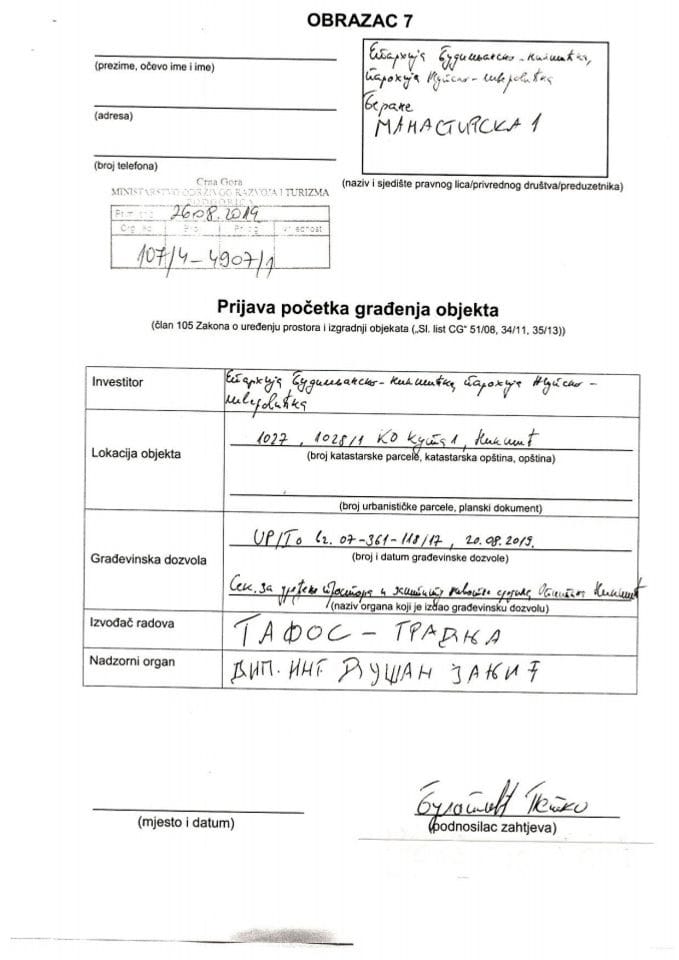 OBRAZAC 7
(prezime, očevo ime i ime)
(adresa)
(broj telefona)
Епархија Будимљанско-никшићка,
парохија
Беране
МАНАСТИРСКА 1
(naziv i sjedište pravnog lica/privrednog društva/preduzetnika)
Crna Gora
MINISTARSTVO ODRŽIVOG RAZVOJA I TURIZMA
PODGORICA
26.08.2019
107/4-4907/1
Prijava početka građenja objekta
(član 105 Zakona o uređenju prostora i izgradnji objekata („Sl. list CG" 51/08, 34/11, 35/13))
Investitor
Епархија Будимљанско-никшићка, парохија
Lokacija objekta
1027, 1028/1 KO Кута 1, Никшић
(broj katastarske parcele, katastarska opština, opština)
(broj urbanističke parcele, planski dokument)
Građevinska dozvola
UP/To br. 07-361-118/17, 20.08.2019.
(broj i datum građevinske dozvole)
Сек. за уређење простора и заштиту животне средине Општина Никшић
(naziv organa koji je izdao građevinsku dozvolu)
Izvođač radova
ТАФОС - ГРАДЊА
Nadzorni organ
ДИП. ИНГ ДУШАН ЗАКИЋ
(mjesto i datum)
(podnosilac zahtjeva)